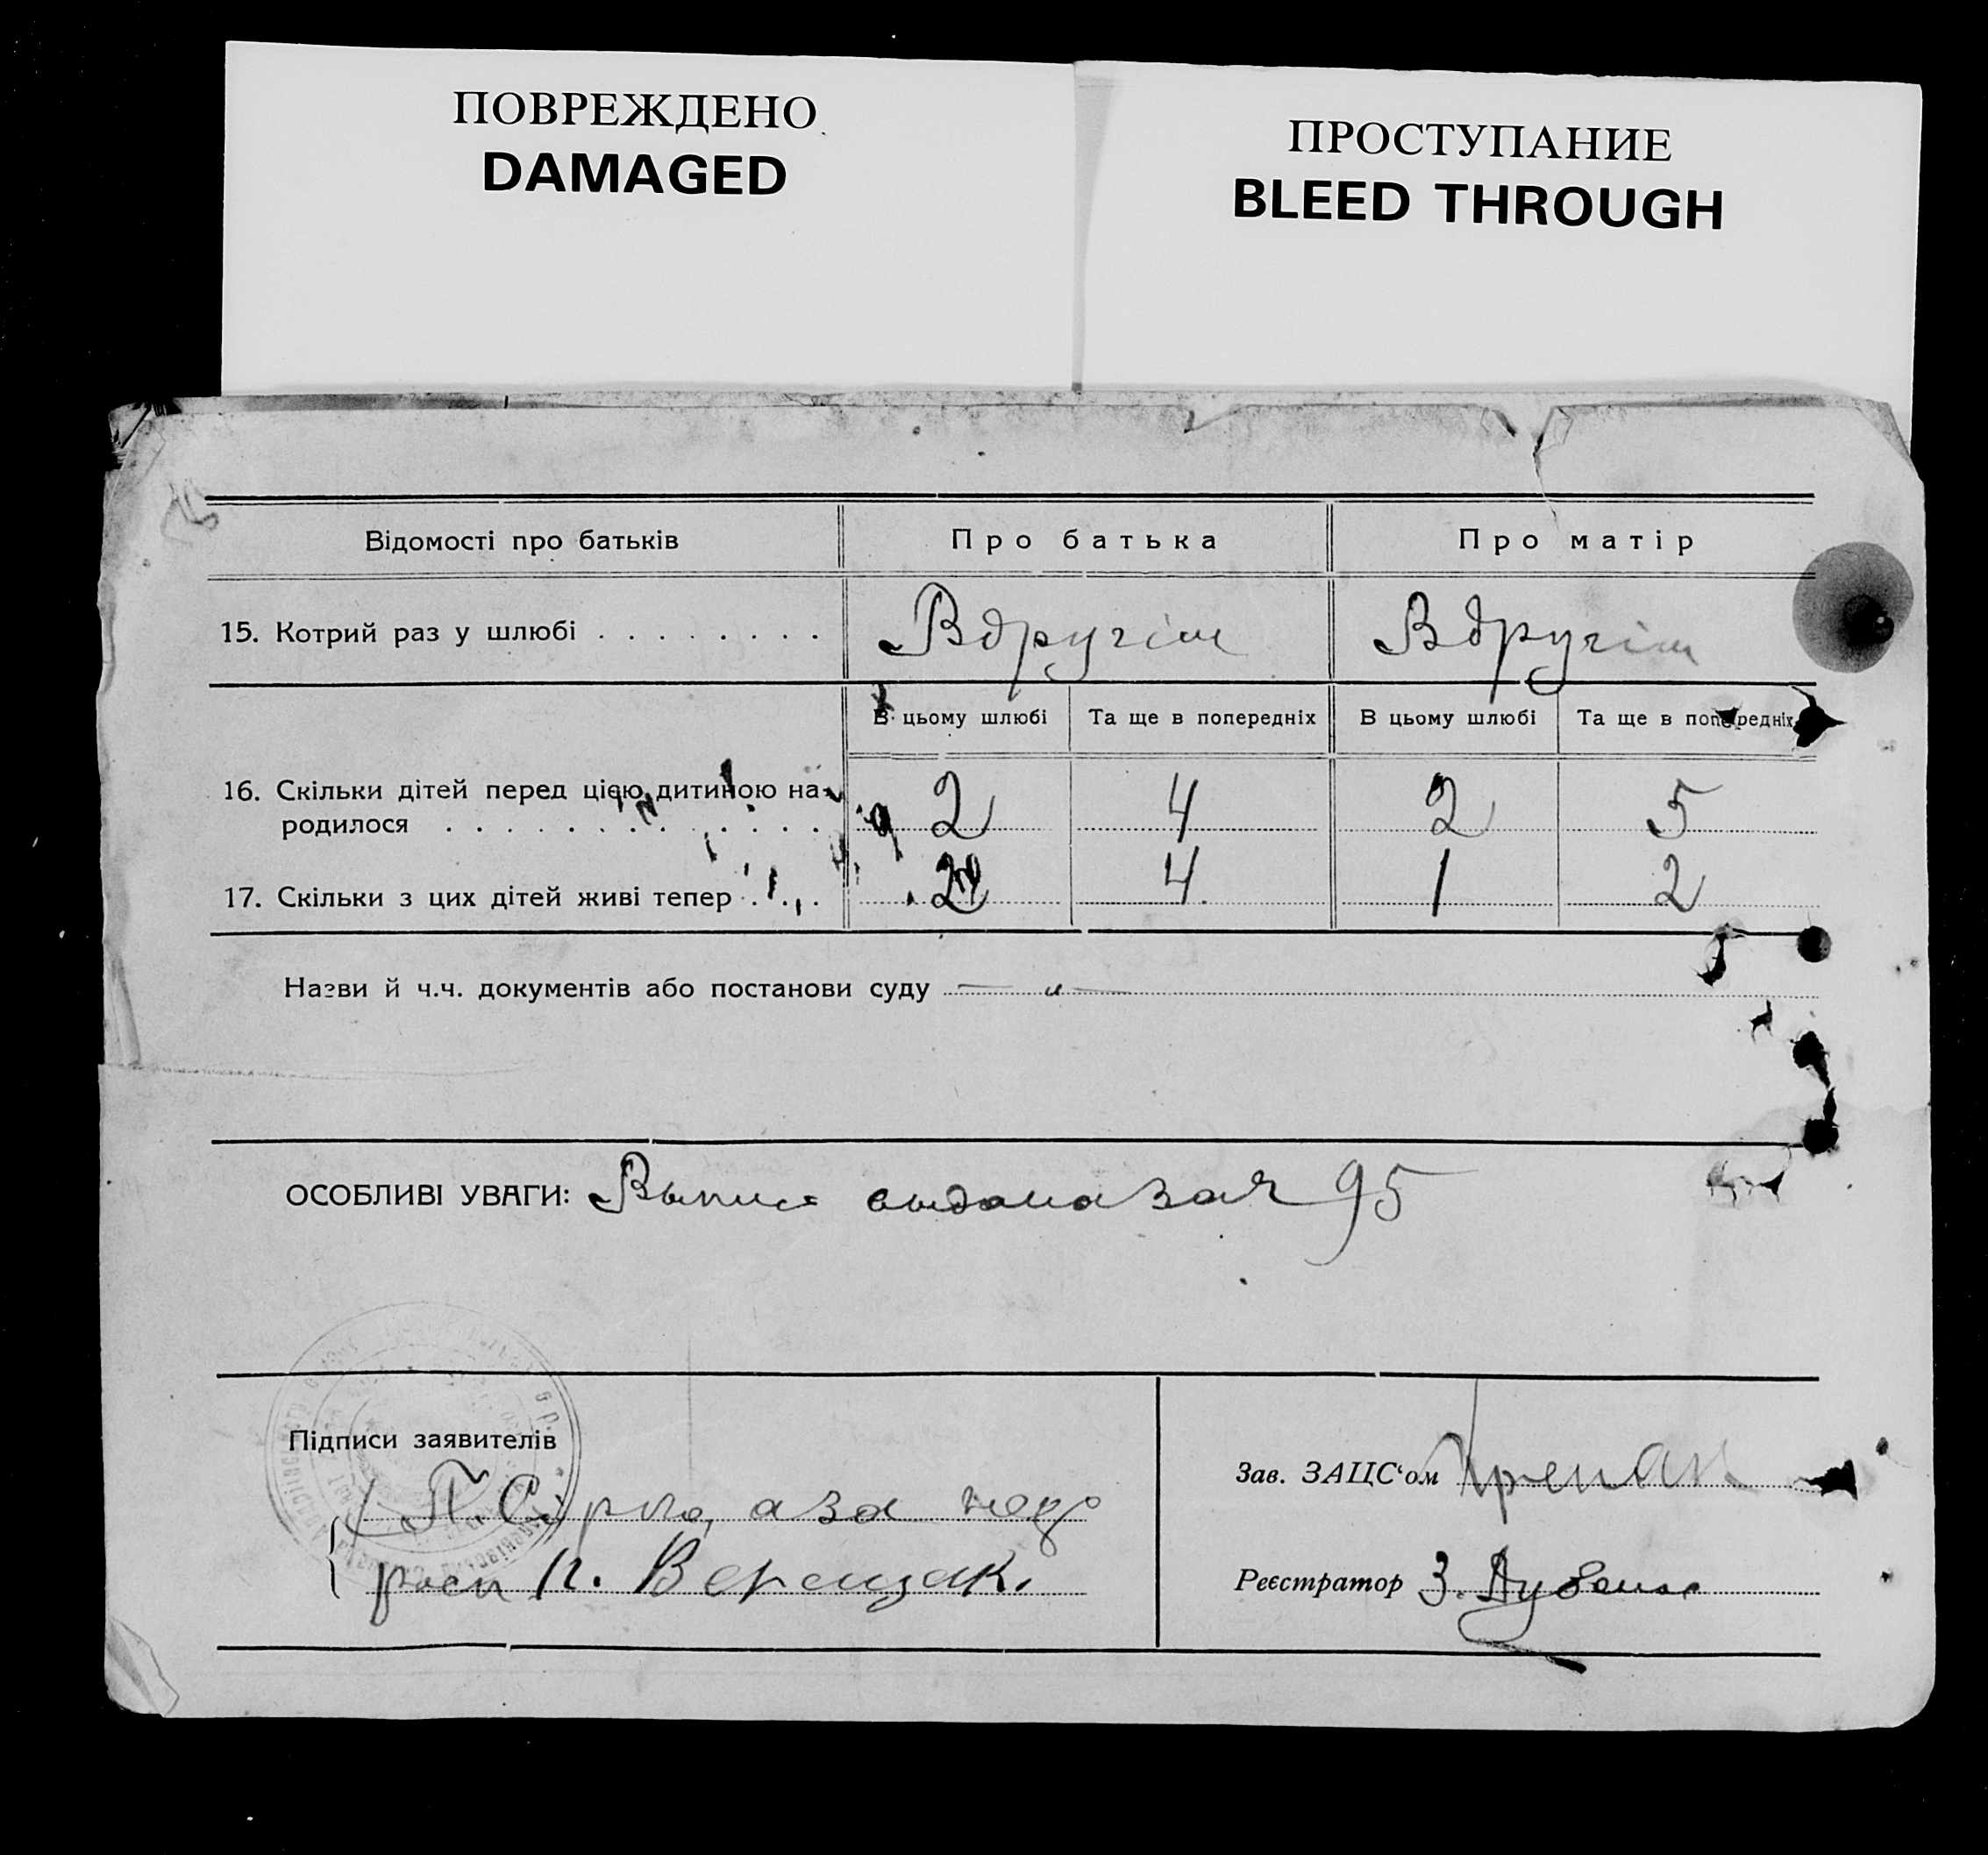 ПОВРЕЖДЕНО
DAMAGED
ПРОСТУПАНИЕ
BLEED THROUGH
Відомості про батьків Про батька Про матір
15. Котрий раз у шлюбі . . . . . . . . Вдругім Вдругім
В цьому шлюбі Та ще в попередніх В цьому шлюбі Та ще в попередніх
16. Скільки дітей перед цією дитиною на-
родилося . . . . . . . . . . . . . 2 4 2 5
17. Скільки з цих дітей живі тепер . . . . 2 4. 1 2
Назви й ч.ч. документів або постанови суду — „ —
ОСОБЛИВІ УВАГИ: Выпись выдана за № 95
Підписи заявителів
П. а за него
росп Верещак.
Зав. ЗАЦС‘ом
Реєстратор З.